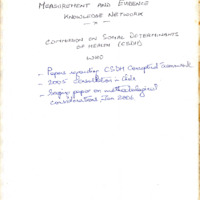 MEASUREMENT AND EVIDENCE
KNOWLEDGE NETWORK
COMMISSION ON SOCIAL DETERMINANTS
OF HEALTH (CSDH)
WHO
- Papers regarding CSDH Conceptual Framework
- 2005 Consultation in Chile
- Scoping paper on methodological
considerations, Jan 2006